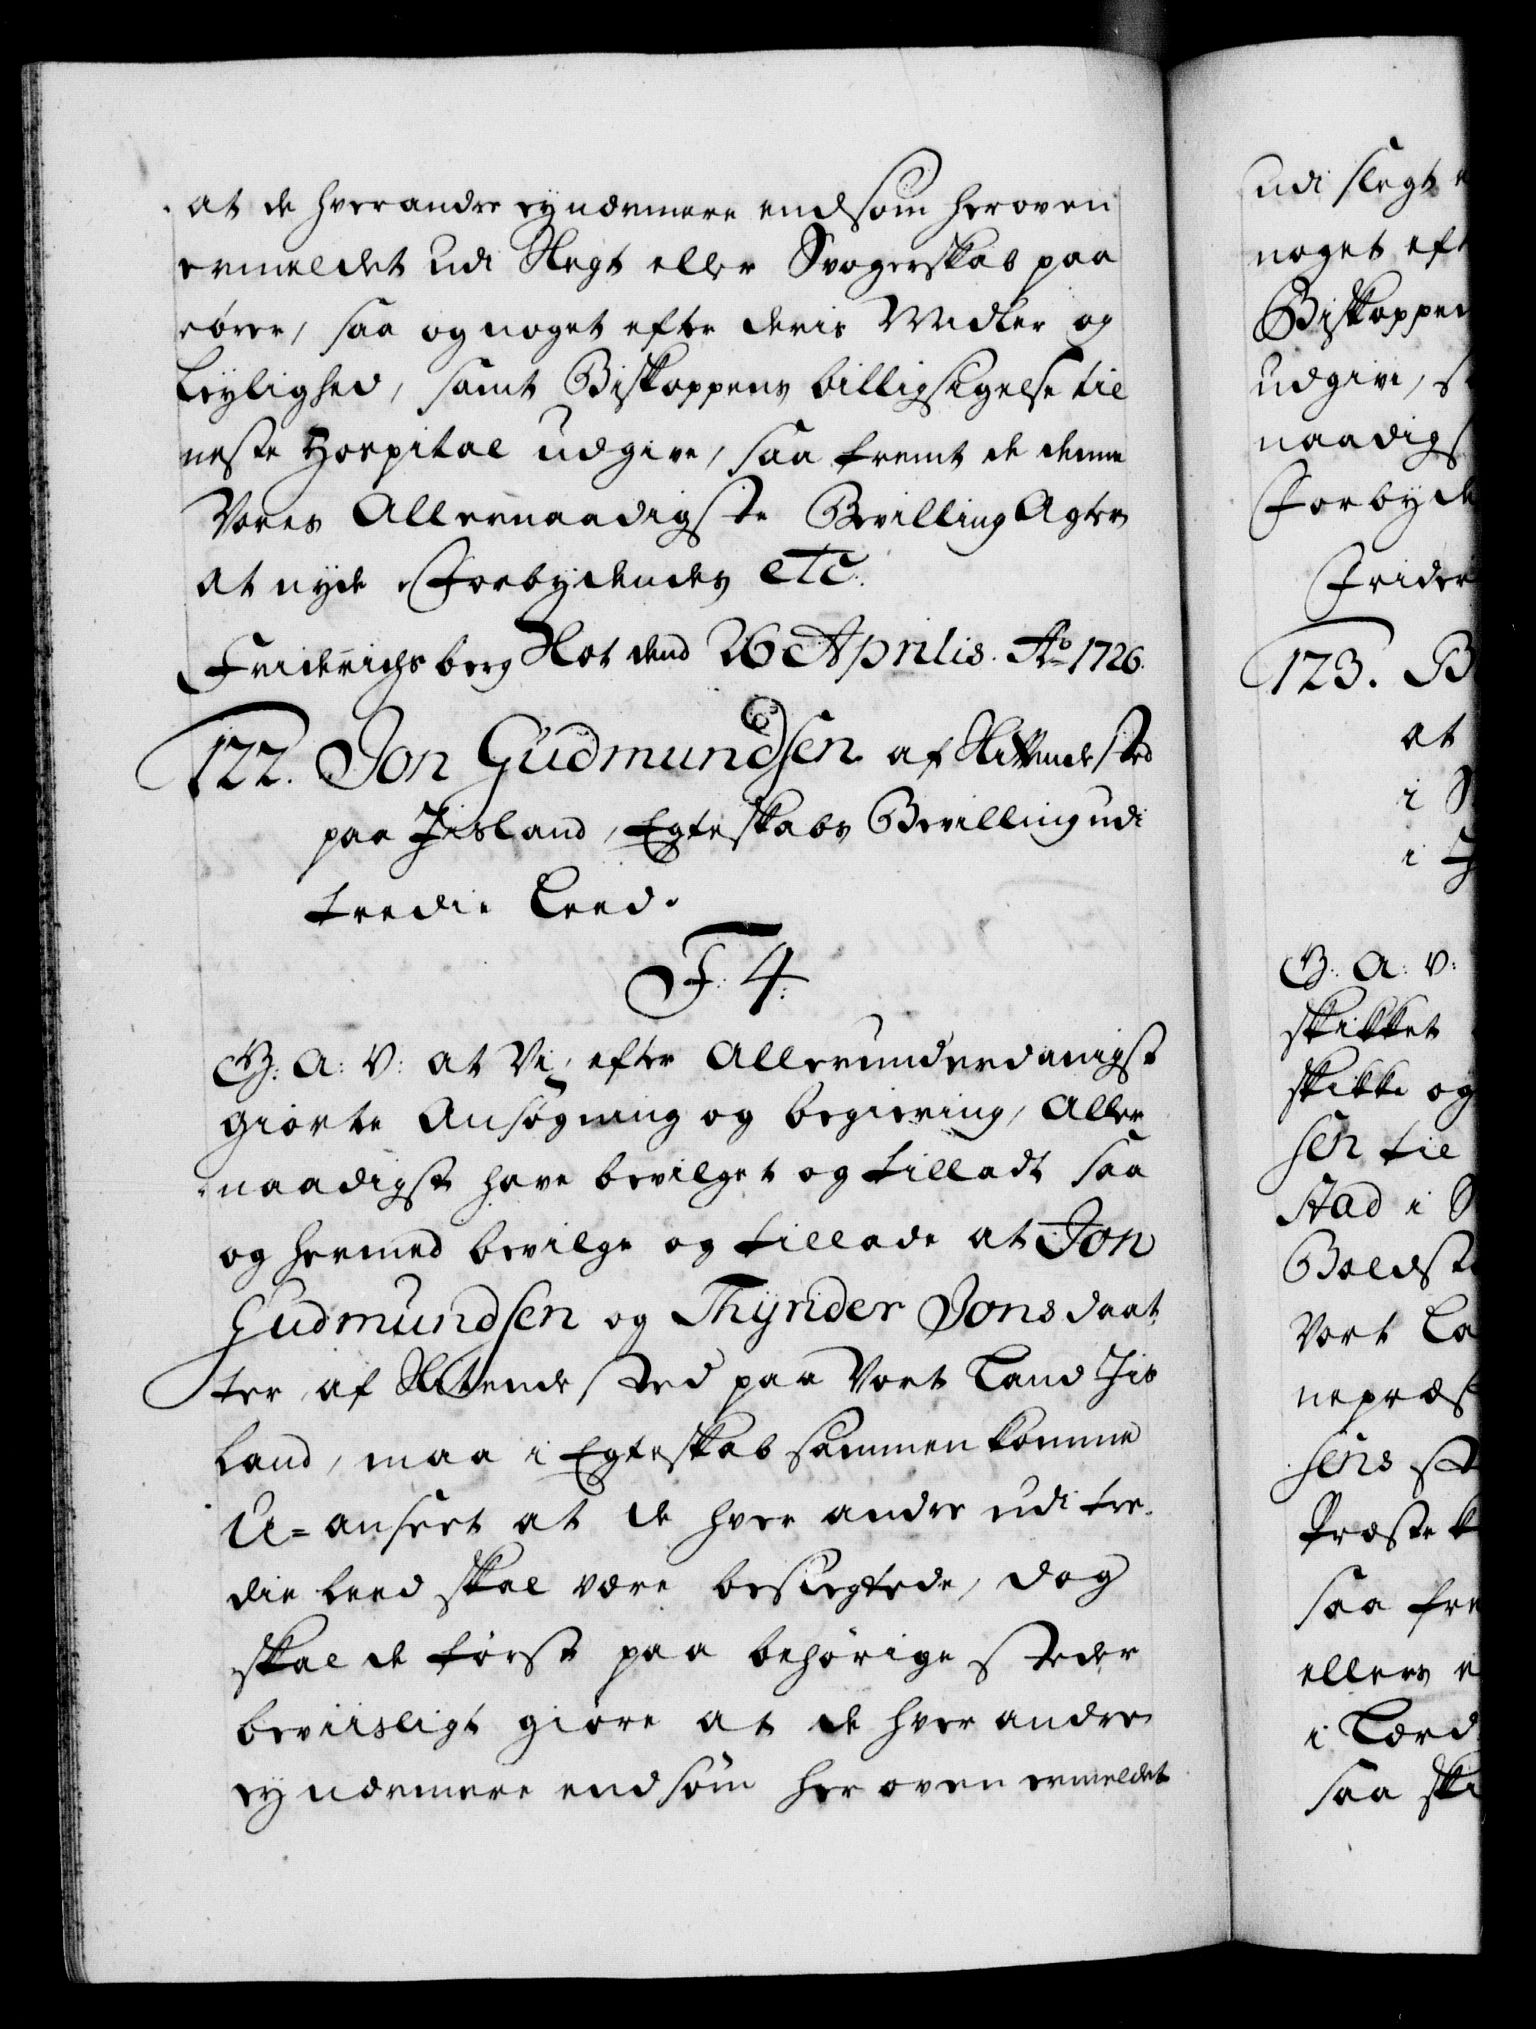 at de hverandre ey nærmere end som heroven
ermeldet udi Slegt eller Svogerskab paa
rörer, saa og noget efter deris Midler og
Leylighed, samt Biskoppens billigsigelse til
neste Hospital udgive, saa fremt de denne
Vores Allernaadigste Bevilling Agter
at nyde Forbydendes etc:
Friderichsberg Slot dend 26 Aprilis. Ao 1726.
122. Jon Gudmundsen af
paa Jisland, Egteskabs Bevilling udi
tredie Leed.
F: 4:
G: A: V: at Vi, efter Allerunderdanigst
giorte Ansögning og begiering, Aller
naadigst have bevilget og tilladt saa
og hermed bevilge og tillade at Jon
Gudmundsen og Thyrider Jonsdaat
ter, af paa Vort Land Jis
land, maa i Egteskab sammenkomme
U=anseet at de hver andre udi tre
die leed skal være beslegtede, dog
skal de först paa behörige steder
beviisligt giöre at de hver andre
ey nærmere end som her oven ermeldet
udi slegt
noget eft
Biskoppen
udgive, s
naadigs
Forbyde
Frider
123. B
at
i S
i
G: A: V:
skikket
skikke og
sen til
stad i S
Boldst
Vort La
nepræs
sens st
Præste k
saa fre
ellers e
i Lærd
saa ski